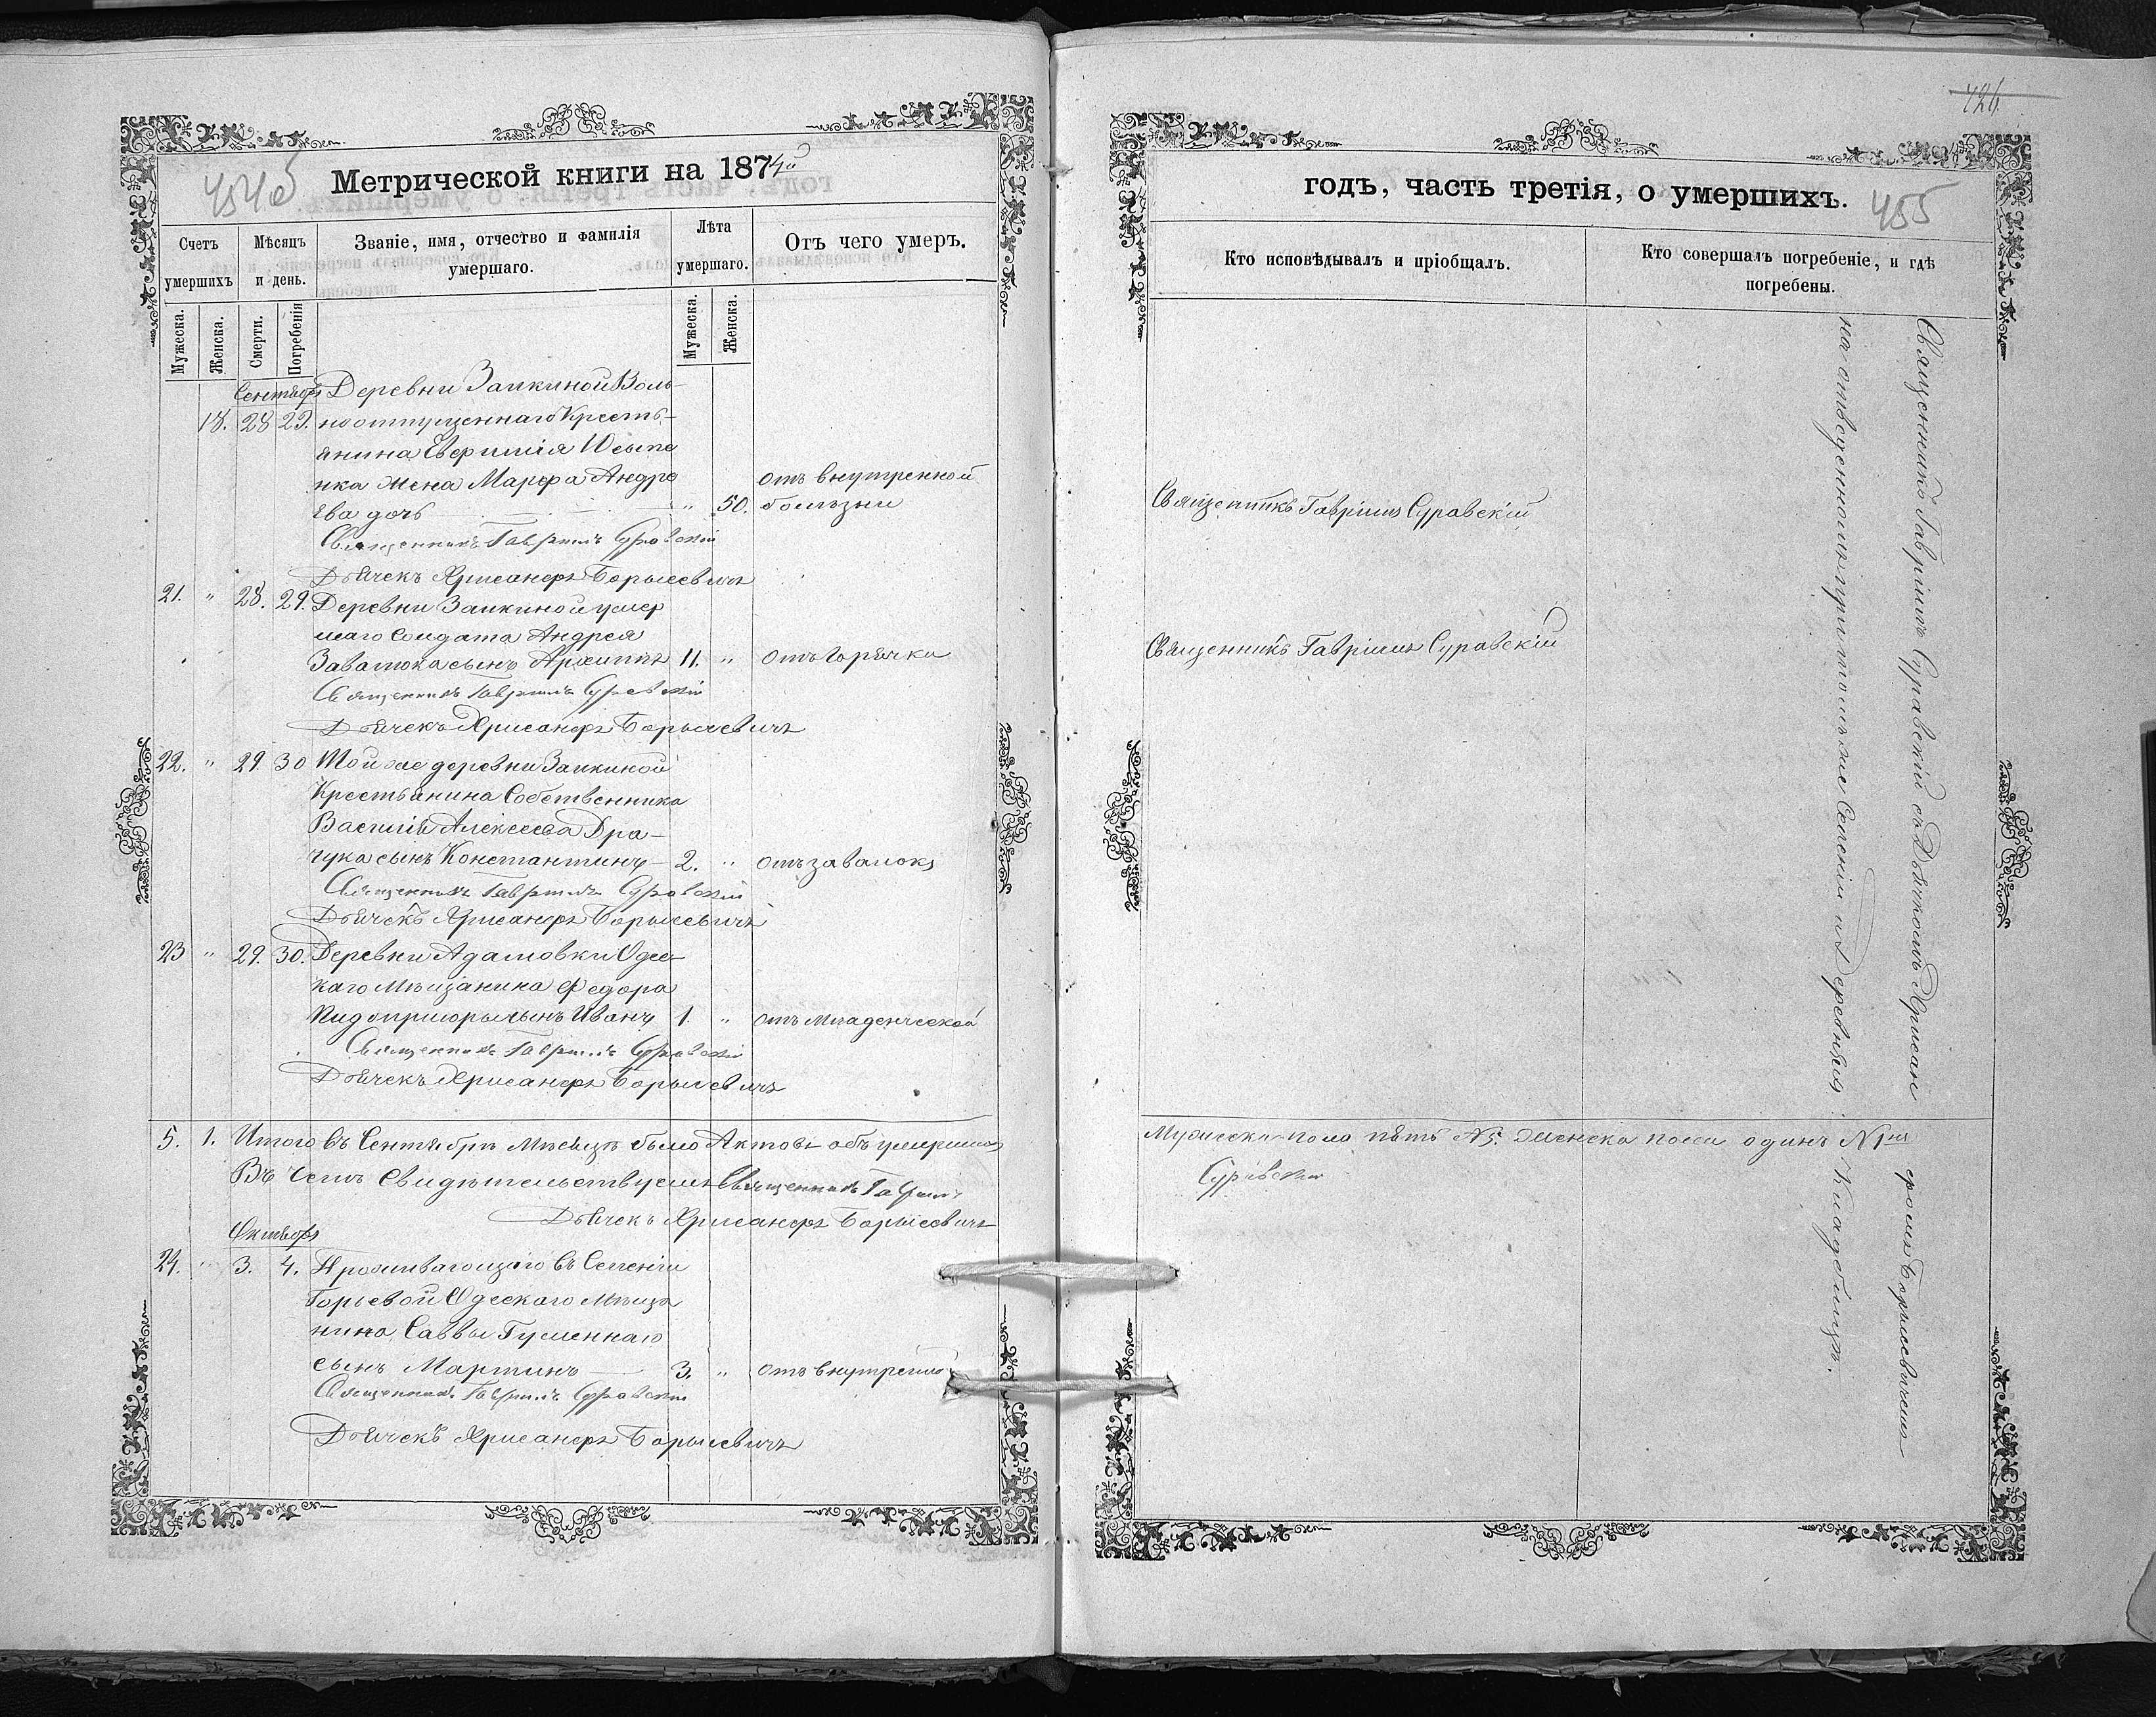 454об
Метрической книги на 1874й
Счетъ умершихъ
Мѣсяцъ и день.
Званіе, имя, отчество и фамилія умершаго.
Лѣта умершаго.
Отъ чего умеръ.
Мужеска.
Женска.
Смерти.
Погребенія
Мужеска.
Женска.
Сентябрь Деревни Заикиной Воль-
18. 28 29. ноотпущеннаго Кресть-
янина Евфимія
жена Марфа Андре отъ внутренной
ева дочь " 50. болѣзни
Священникъ Гавріилъ Суравскій
Дьячекъ Хрисанфъ Борысевичъ
21. " 28. 29. Деревни Заикиной умер
шаго Солдата Андрея
Завалюка сынъ Архиппъ 11. " отъ Горячки
Священникъ Гавріилъ Суравскій
Дьячекъ Хрисанфъ Борысевичъ
22. " 29. 30 Той же деревни Заикиной
Крестьянина Собственника
Василія Алексѣева Дра-
чука сынъ Константинъ 2. " отъ завалокъ
Священникъ Гавріилъ Суравскій
Дьячекъ Хрисанфъ Борысевичъ
23 " 29. 30. Деревни Адамовки Одес-
каго Мѣщанина Федора
сынъ Иванъ 1. " отъ Младенческой
Священникъ Гавріилъ Суравскій
Дьячекъ Хрисанфъ Борысевичъ
5. 1. Итого въ Сентябрѣ Мѣсяцѣ было Актовъ объ умершихъ
Въ чемъ Свидѣтельствуемъ Священникъ Гавріилъ
Дьячекъ Хрисанфъ Борысевичъ
Октябрь
24. " 3. 4. Проживающаго въ Селеніи
Горьевой Одескаго Мѣща
нина Саввы Гуменнаго
сынъ Мартинъ 3. " отъ внутренной
Священникъ Гавріилъ Суравскій
Дьячекъ Хрисанфъ Борысевичъ
426
годъ, часть третія, о умершихъ.
455
Кто исповѣдывалъ и пріобщалъ.
Кто совершалъ погребеніе, и гдѣ погребены.
Священникъ Гавріилъ Суравскій
Священникъ Гавріилъ Суравскій
Мужеска пола пять №5. Женска пола одинъ №1й
Суравскій
Священникъ Гавріилъ Суравскій съ Дьячкомъ Хрисан
фомъ Борысевичемъ
на отведенномъ при томъ же Селеніи и Деревняхъ
Кладбищѣ.